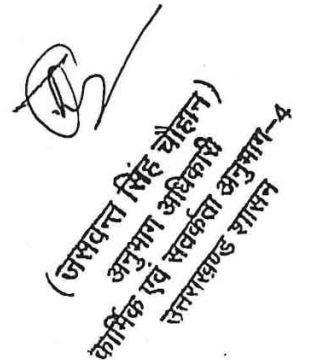 (जसवन्त सिंह चौहान)
अनुभाग अधिकारी
कार्मिक एवं सतर्कता अनुभाग-4
उत्तराखण्ड शासन